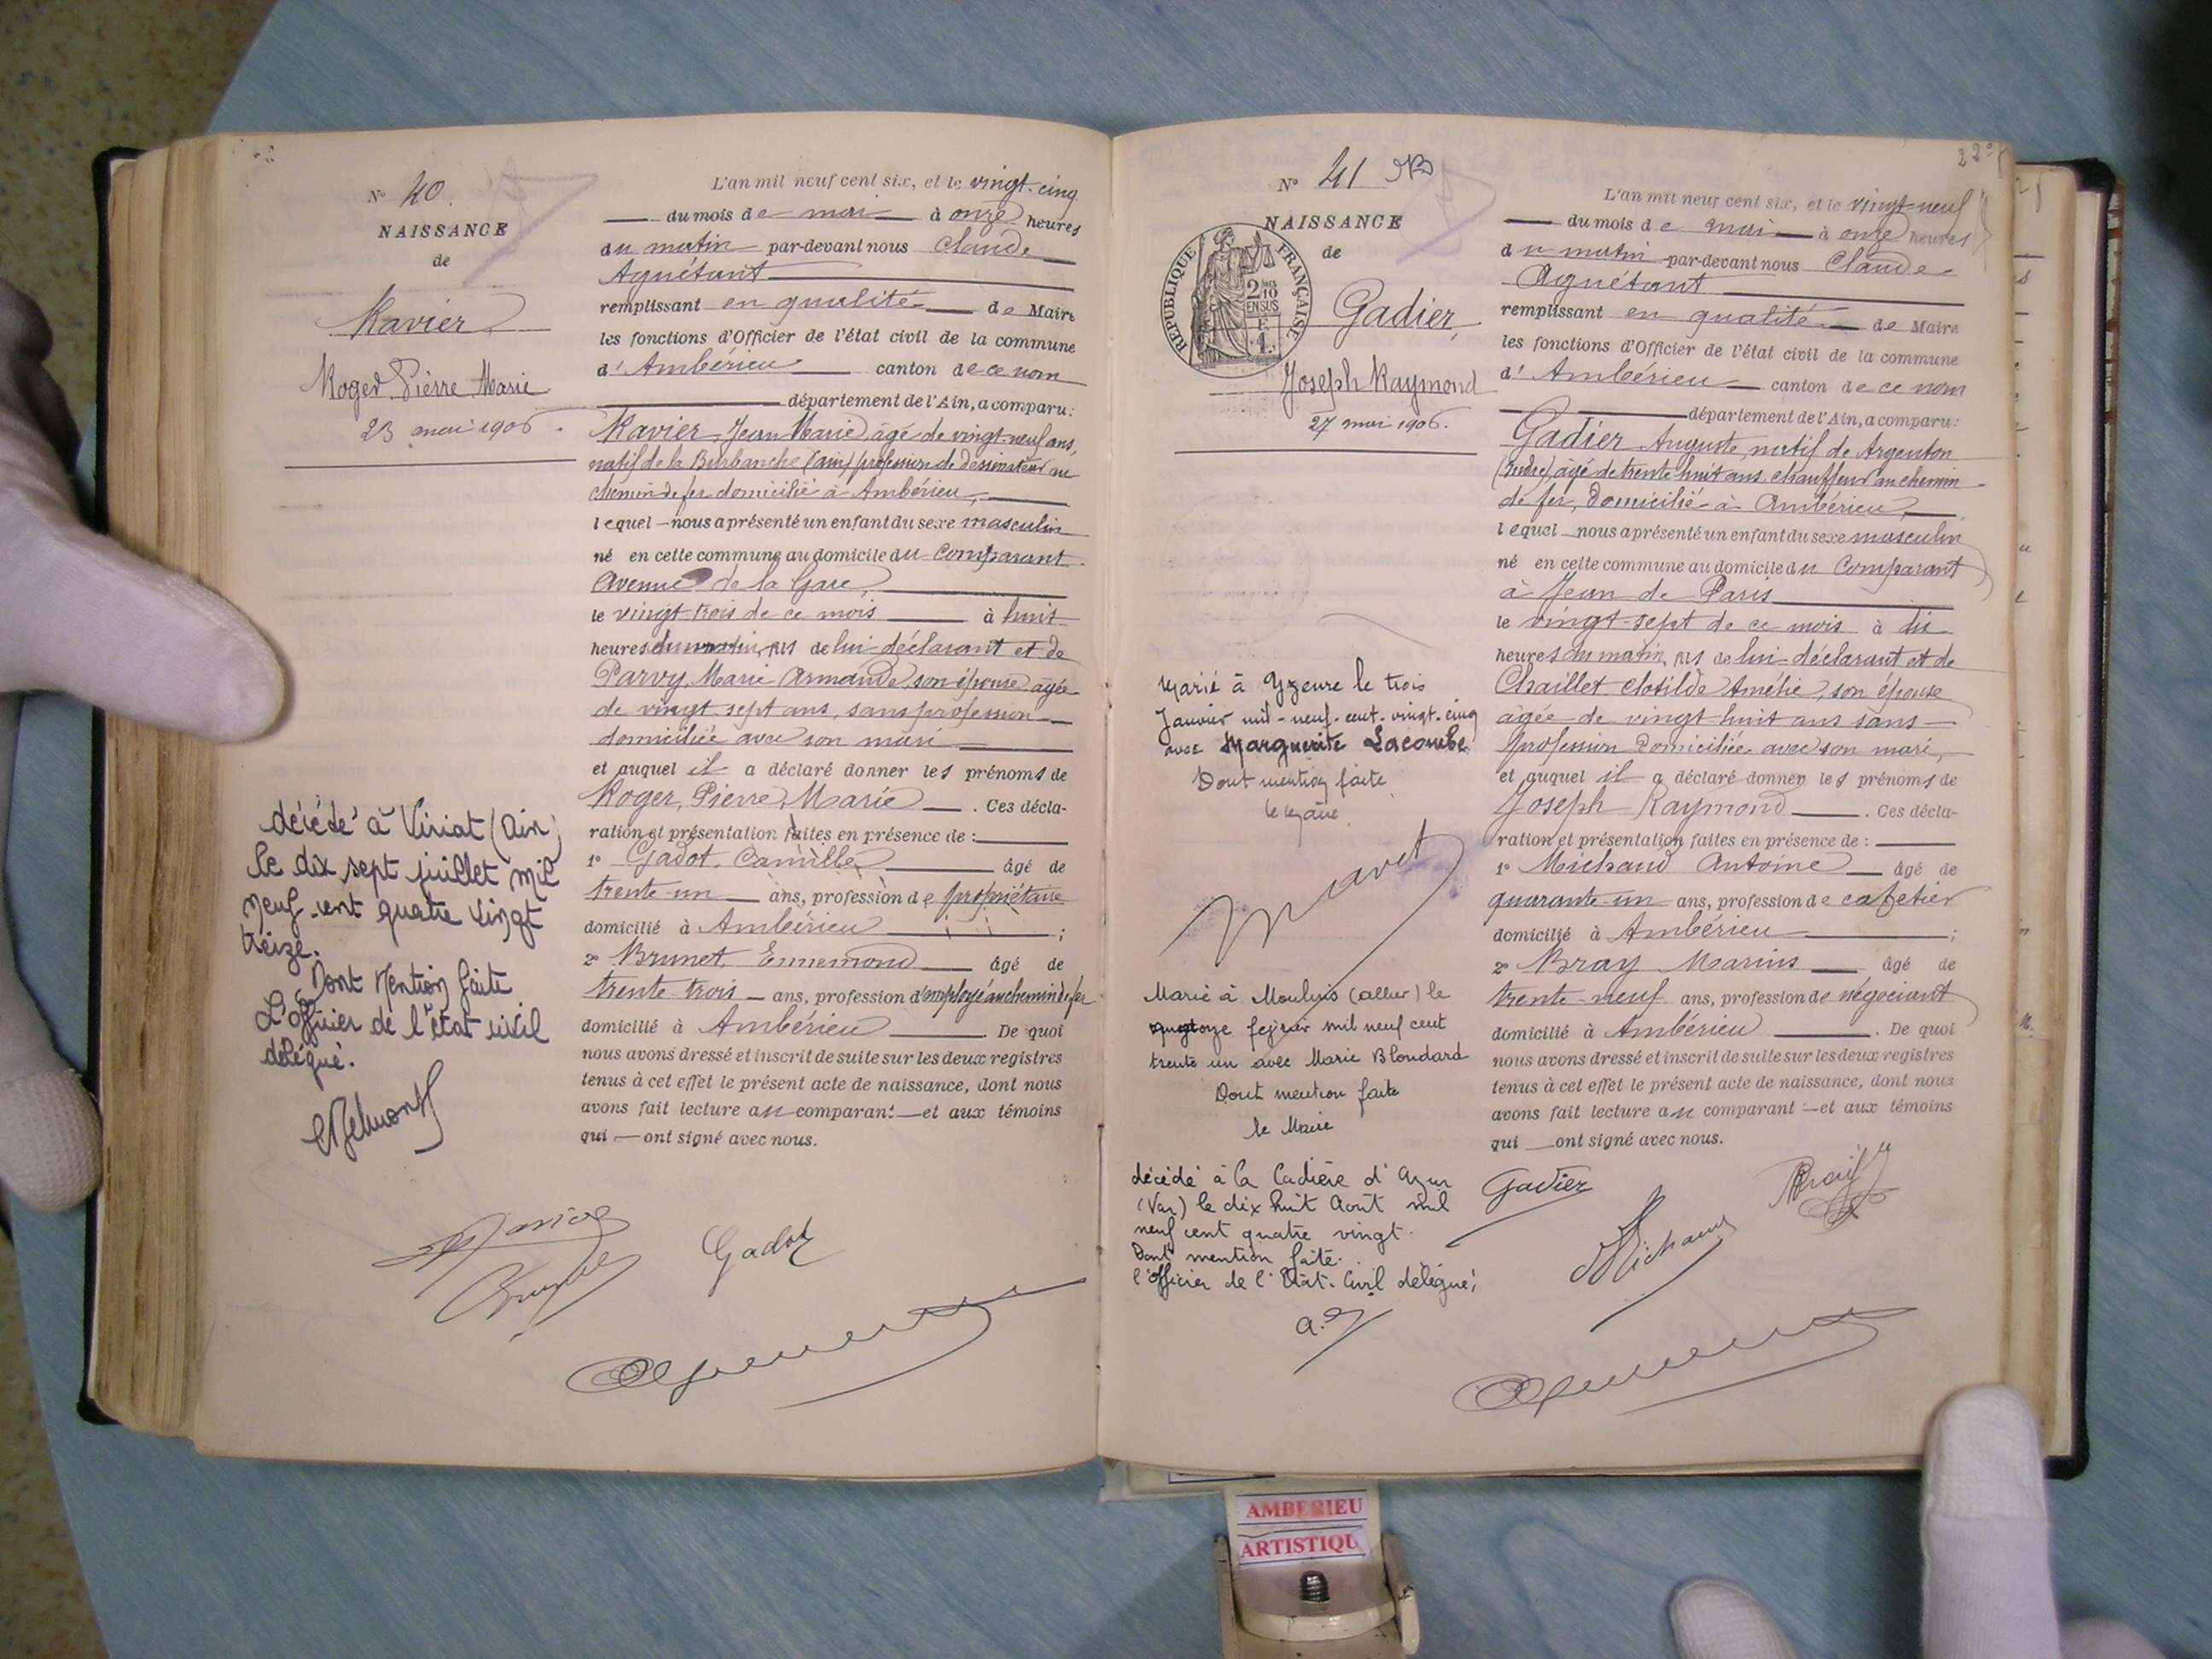 N° 40.
NAISSANCE
de
Ravier
Roger Pierre Marie
23 mai 1906.
décédé à Viriat (Ain)
le dix sept juillet mil
neuf cent quatre vingt
treize.
Dont Mention faite
L'officier de l'état civil
délégué.
L'an mil neuf cent six, et le vingt-cinq
du mois de mai à onze heures
du matin par-devant nous Claude
Aguétant
remplissant en qualité de Maire
les fonctions d'Officier de l'état civil de la commune
d'Ambérieu canton de ce nom
département de l'Ain, a comparu:
Ravier Jean Marie, âgé de vingt-neuf ans,
natif de la Burbanche (Ain) profession de dessinateur au
chemin de fer domicilié à Ambérieu,
lequel nous a présenté un enfant du sexe masculin
né en cette commune au domicile du Comparant
Avenue de la Gare,
le vingt trois de ce mois à huit
heures du matin, fils de lui déclarant et de
Parvy, Marie Armande, son épouse âgée
de vingt-sept ans, sans profession
domiciliée avec son mari
et auquel il a déclaré donner les prénoms de
Roger, Pierre, Marie. Ces décla-
ration et présentation faites en présence de:
1° Gadot, Camille âgé de
trente-un ans, profession de propriétaire
domicilié à Ambérieu;
2° Brunet, Ennemond âgé de
trente-trois ans, profession d'employé au chemin de fer
domicilié à Ambérieu. De quoi
nous avons dressé et inscrit de suite sur les deux registres
tenus à cet effet le présent acte de naissance, dont nous
avons fait lecture au comparant et aux témoins
qui ont signé avec nous.
Ravier
Gadot
Brunet
Aguétant
22
N° 41
NAISSANCE
de
RÉPUBLIQUE FRANÇAISE
2/10
EN SUS
Gadier,
Joseph Raymond
27 mai 1906.
Marié à Yzeure le trois
Janvier mil-neuf-cent-vingt-cinq
avec Marguerite Lacombe
Dont mention faite
le Maire
Marié à Moulins (allier) le
onze février mil neuf cent
trente un avec Marie Blondard
Dont mention faite
le Maire
décédé à la Cadière d'Azur
(Var) le dix huit Août mil
neuf cent quatre vingt.
Dont mention faite.
l'officier de l'Etat-Civil délégué,
L'an mil neuf cent six, et le vingt-neuf
du mois de mai à onze heures
du matin par-devant nous Claude
Aguétant
remplissant en qualité de Maire
les fonctions d'Officier de l'état civil de la commune
d'Ambérieu canton de ce nom
département de l'Ain, a comparu:
Gadier Auguste, natif de Argenton
(Indre) âgé de trente huit ans, chauffeur au chemin
de fer, domicilié à Ambérieu,
lequel nous a présenté un enfant du sexe masculin
né en cette commune au domicile du Comparant
à Jean de Paris
le vingt-sept de ce mois à dix
heures du matin, fils de lui déclarant et de
Chaillet Clotilde Amélie, son épouse
âgée de vingt-huit ans sans
profession domiciliée avec son mari,
et auquel il a déclaré donner les prénoms de
Joseph Raymond. Ces décla-
ration et présentation faites en présence de:
1° Michaud Antoine âgé de
quarante-un ans, profession de cafetier
domicilié à Ambérieu;
2° Bray Marius âgé de
trente-neuf ans, profession de négociant
domicilié à Ambérieu. De quoi
nous avons dressé et inscrit de suite sur les deux registres
tenus à cet effet le présent acte de naissance, dont nous
avons fait lecture au comparant et aux témoins
qui ont signé avec nous.
Gadier
Bray
Michaud
Aguétant
AMBERIEU
ARTISTIQU